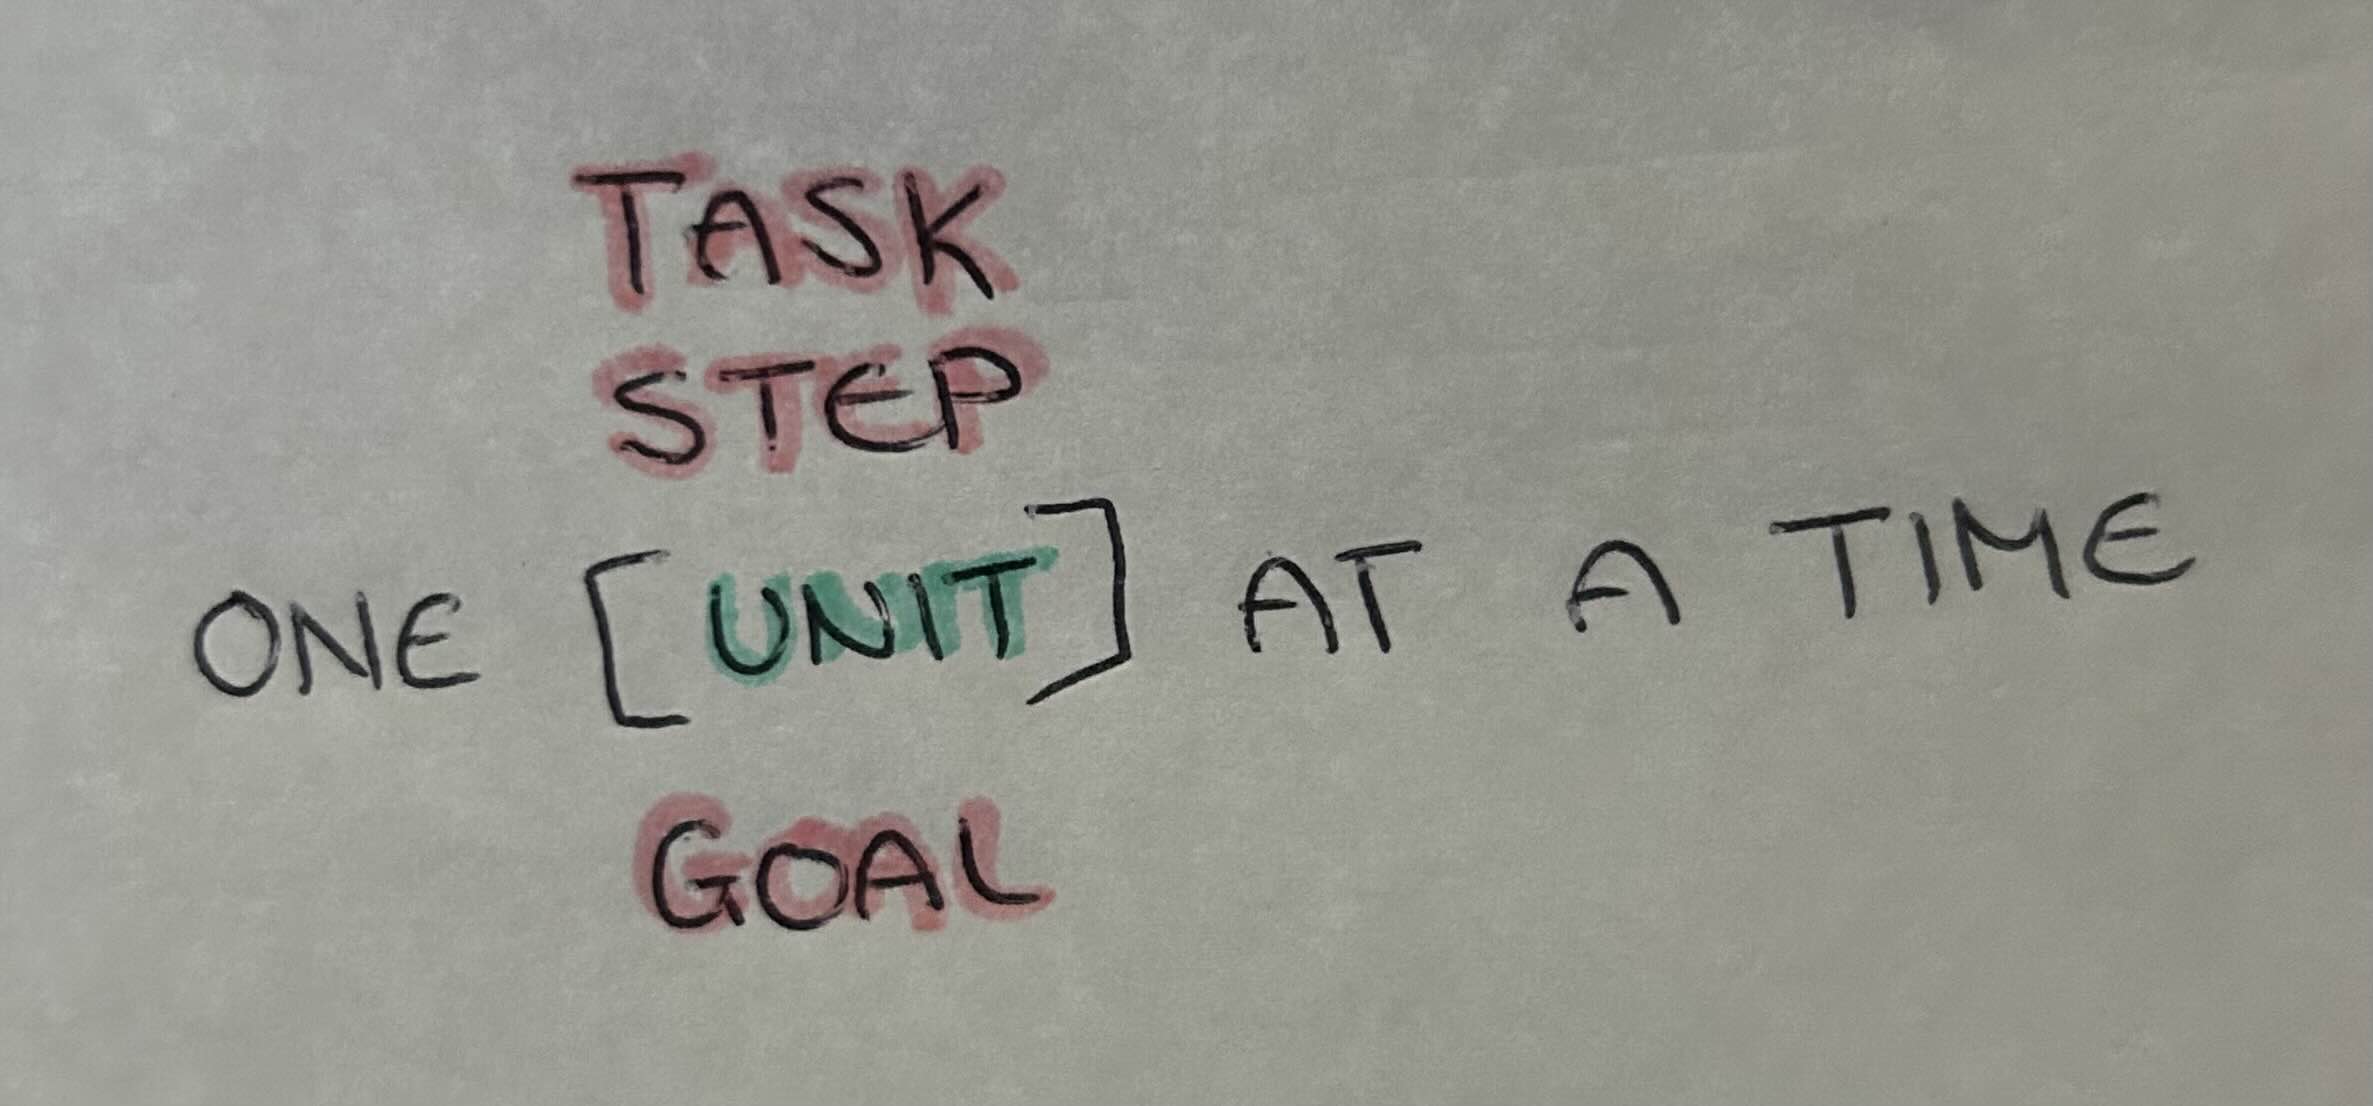 TASK
STEP
ONE [UNIT] AT A TIME
GOAL